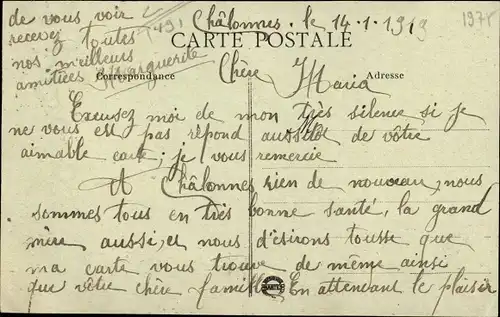 Châlonnes, le 14-1-1919
1978
CARTE POSTALE
Correspondance
Adresse
Chère Maria
Excusez moi de mon très silence si je
ne vous est pas répond aussitôt de vôtre
aimable carte; je vous remercie
A Châlonnes rien de nouveau, nous
sommes tous en très bonne santé, la grand
mère aussi, et nous d'ésirons tousse que
ma carte vous trouve de même ainsi
que vôtre chère famille. En attendant le plaisir
de vous voir
recevez toutes
nos meilleurs
amitiées Marguerite